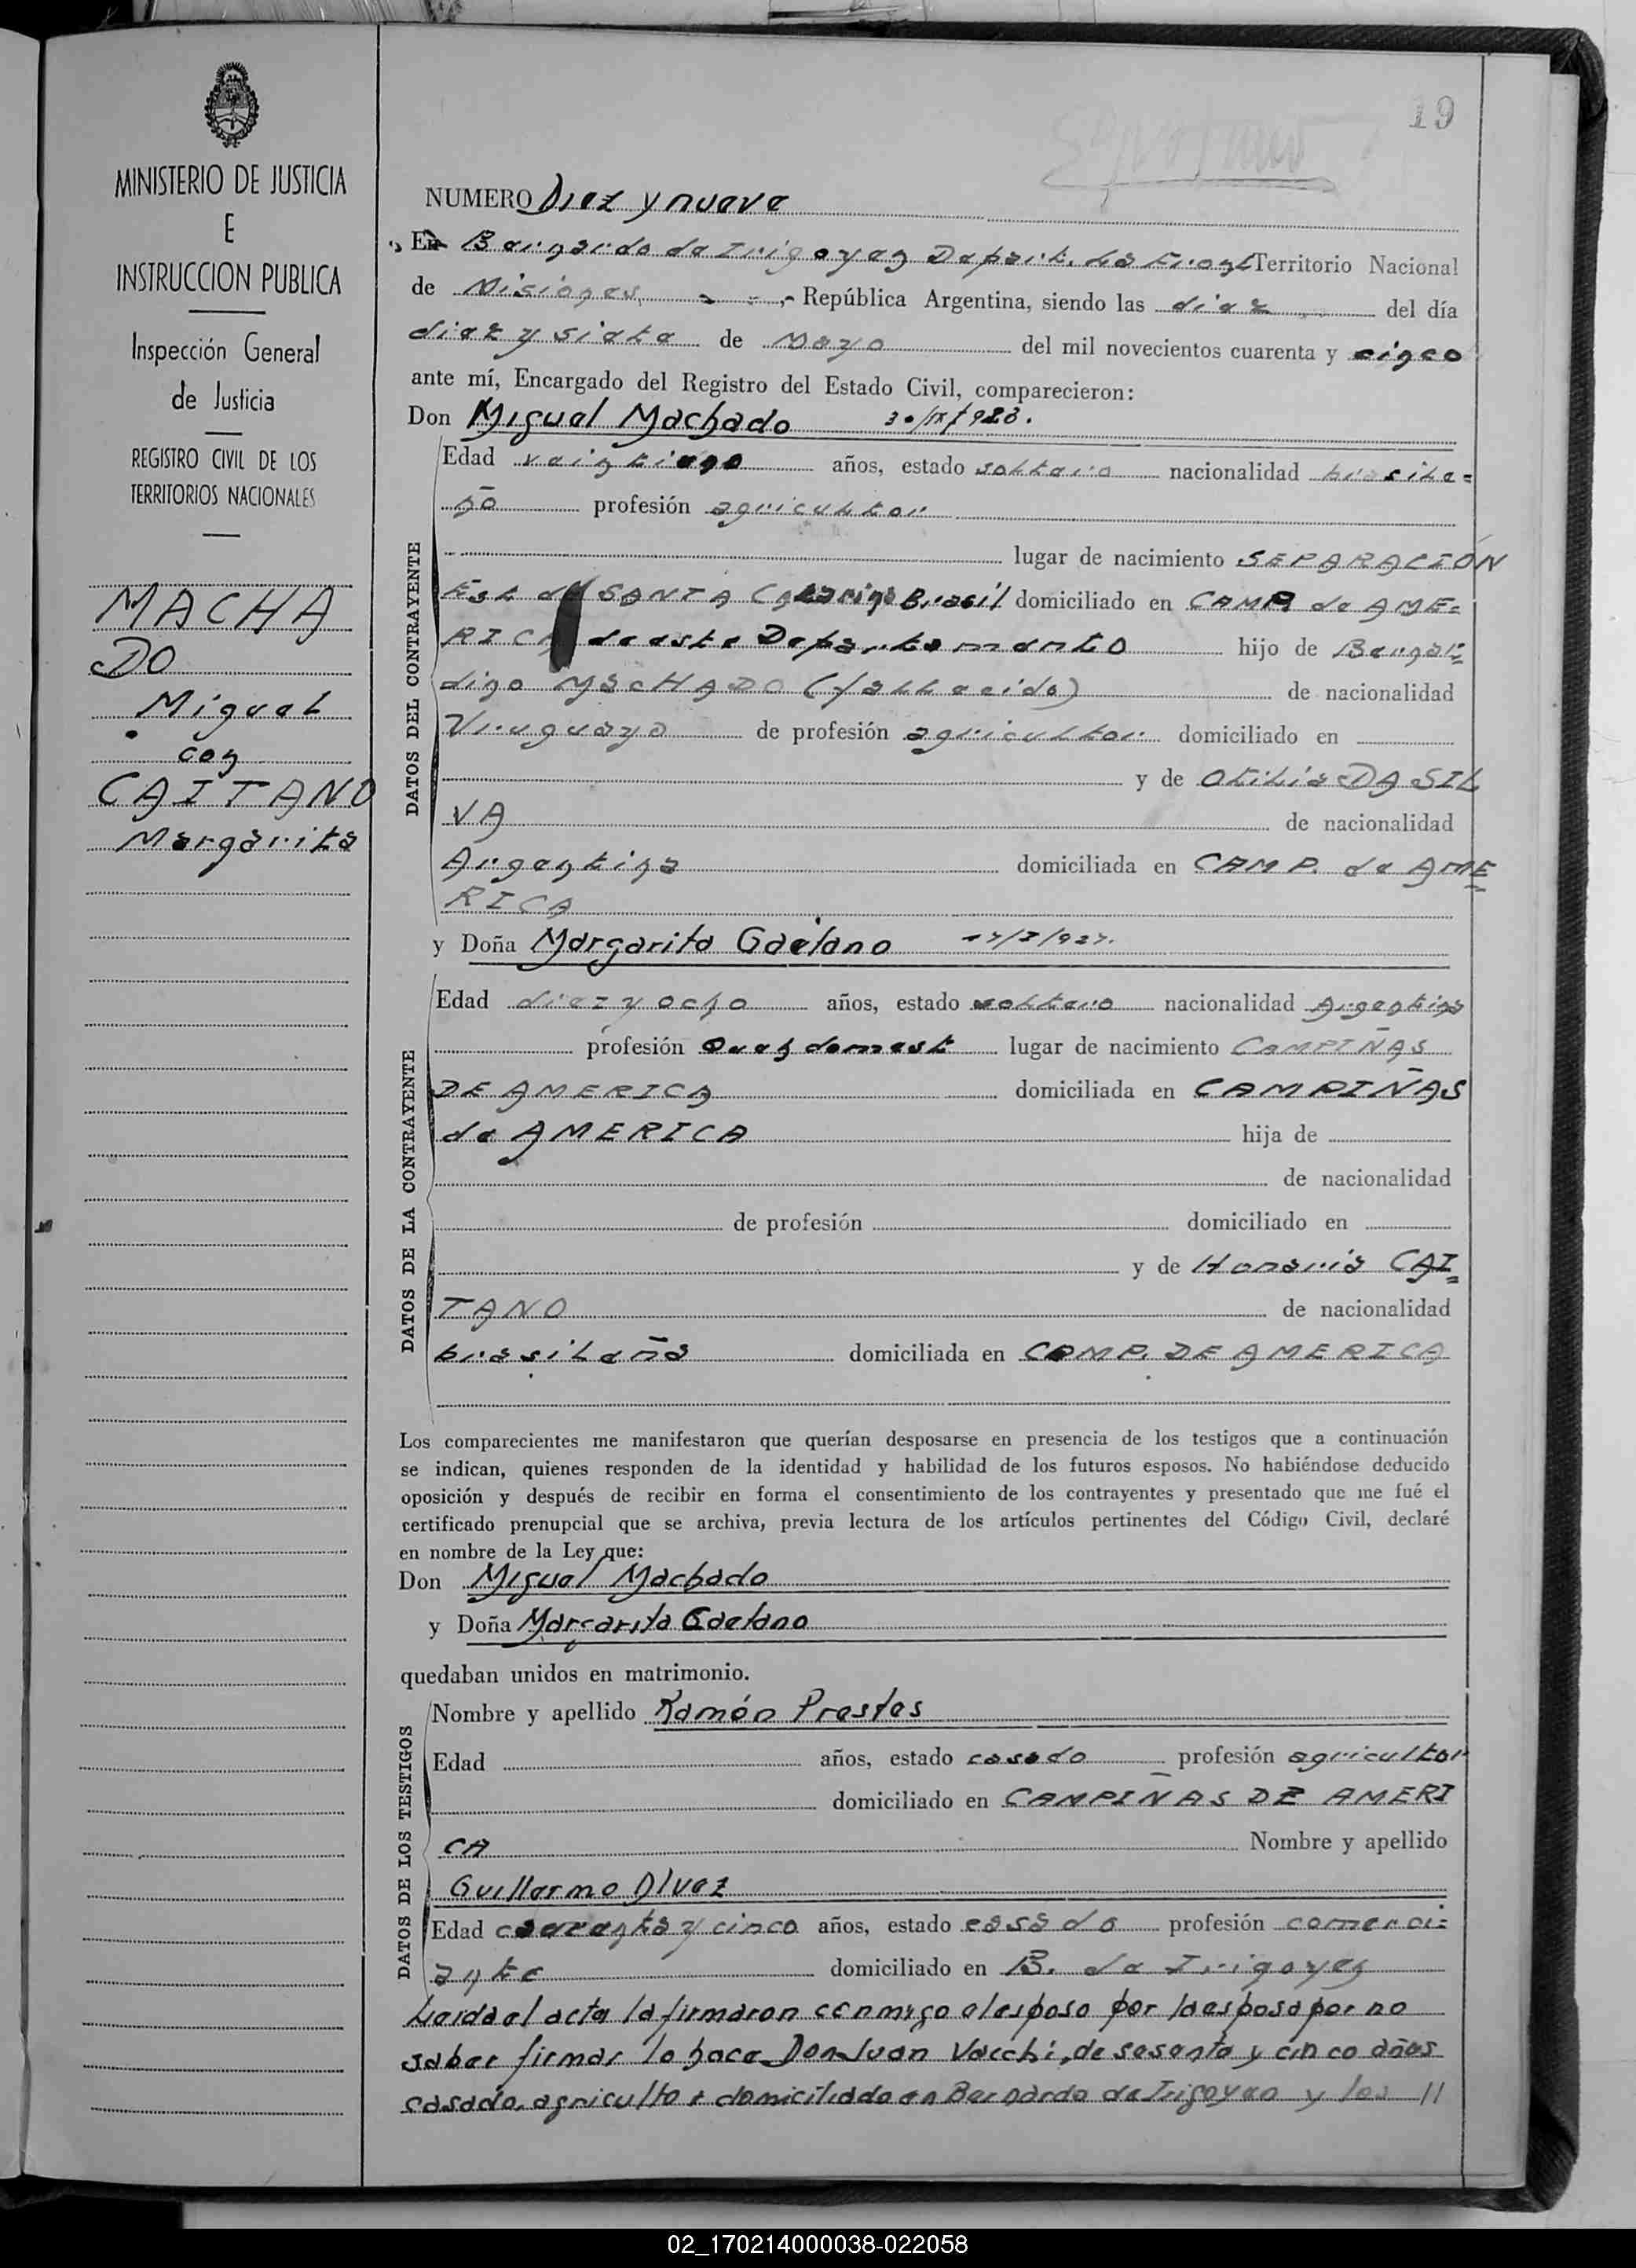 19
MINISTERIO DE JUSTICIA
E
INSTRUCCION PUBLICA
Inspección General
de Justicia
REGISTRO CIVIL DE LOS
TERRITORIOS NACIONALES
MACHA
DO
Miguel
con
CAITANO
Margarita
NUMERO Diez y nueve
En Bernardo de Irigoyen Depart. de Front Territorio Nacional
de Misiones, República Argentina, siendo las diez del día
diez y siete de Mayo del mil novecientos cuarenta y cinco
ante mí, Encargado del Registro del Estado Civil, comparecieron:
Don Miguel Machado 30/IX/923.
DATOS DEL CONTRAYENTE
Edad veintiuno años, estado soltero nacionalidad brasile=
ño profesión agricultor
lugar de nacimiento SEPARACIÓN
Est de SANTA Catarina Brasil domiciliado en CAMP de AME=
RICA de este Departamento hijo de Bernar=
dino MACHADO (fallecido) de nacionalidad
Uruguayo de profesión agricultor domiciliado en
y de Otilia DA SIL
VA de nacionalidad
Argentina domiciliada en CAMP. de AME=
RICA
y Doña Margarita Gaetano
DATOS DE LA CONTRAYENTE
Edad diez y ocho años, estado soltera nacionalidad Argentina
profesión Queh domest lugar de nacimiento CAMPIÑAS
DE AMERICA domiciliada en CAMPIÑAS
de AMERICA hija de
de nacionalidad
de profesión domiciliado en
y de Honoria CAI=
TANO de nacionalidad
brasileña domiciliada en CAMP. DE AMERICA
Los comparecientes me manifestaron que querían desposarse en presencia de los testigos que a continuación
se indican, quienes responden de la identidad y habilidad de los futuros esposos. No habiéndose deducido
oposición y después de recibir en forma el consentimiento de los contrayentes y presentado que me fué el
certificado prenupcial que se archiva, previa lectura de los artículos pertinentes del Código Civil, declaré
en nombre de la Ley que:
Don Miguel Machado
y Doña Margarita Gaetano
quedaban unidos en matrimonio.
DATOS DE LOS TESTIGOS
Nombre y apellido Ramón Prestes
Edad años, estado casado profesión agricultor
domiciliado en CAMPIÑAS DE AMERI
CA Nombre y apellido
Guillermo Olvez
Edad cuarenta y cinco años, estado casado profesión comerci=
ante domiciliado en B. de Irigoyen
Leida el acta la firmaron conmigo el esposo por la esposa por no
saber firmar lo hace Don Juan Vacchi, de sesenta y cinco años
casado, agricultor domiciliado en Bernardo de Irigoyen y los //
02_170214000038-022058